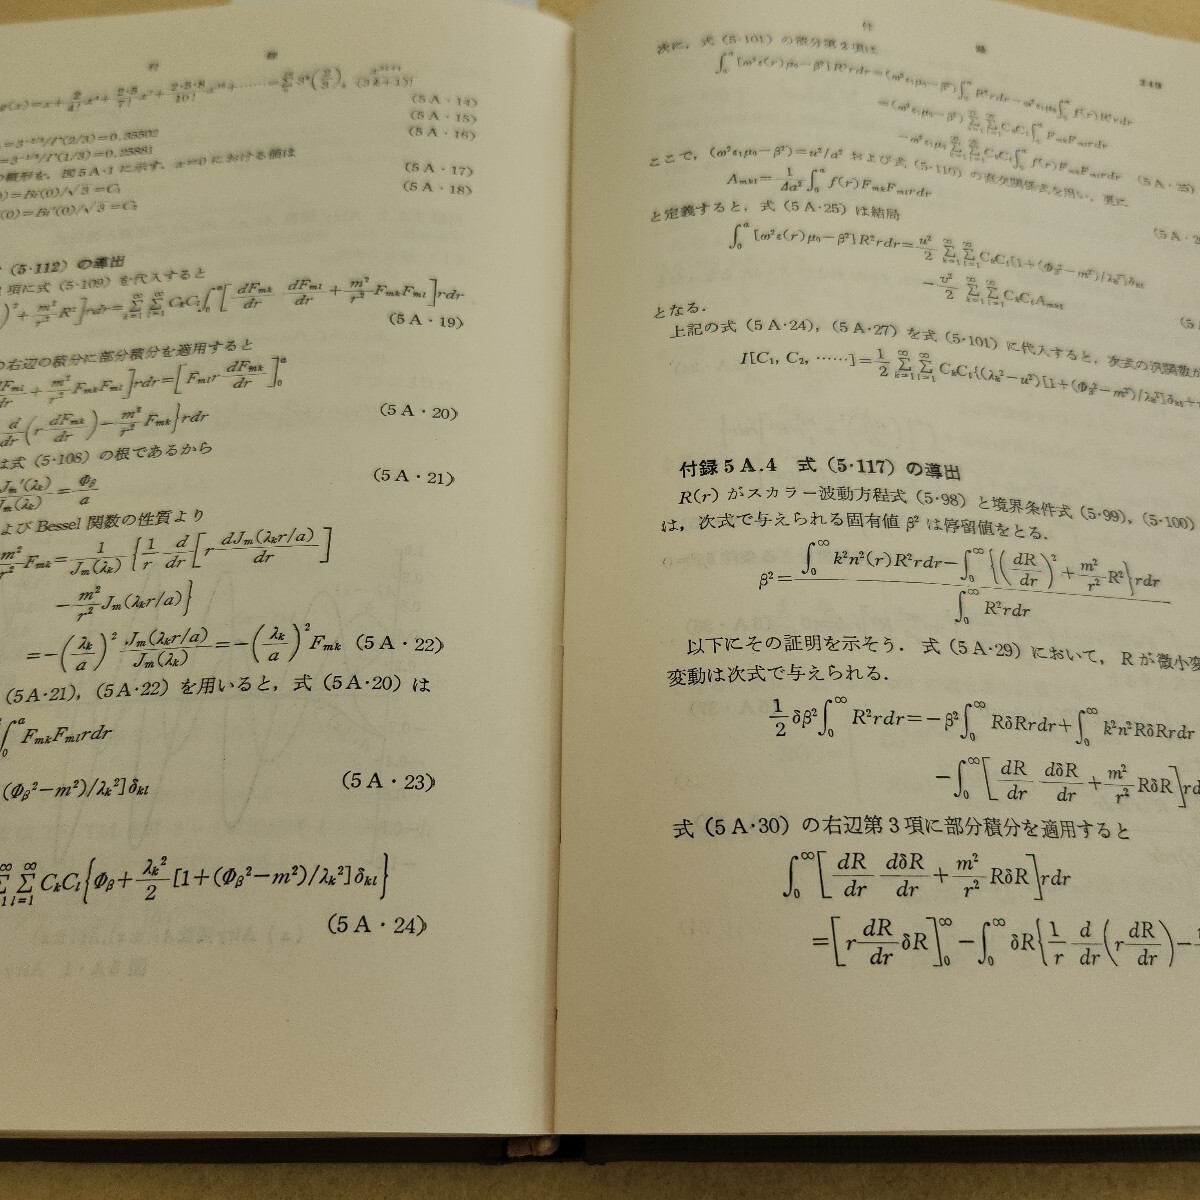 付 録
(5A・14)
(5A・15)
=3^{-2/3}/Γ(2/3)=0.35502 (5A・16)
=3^{-1/3}/Γ(1/3)=0.25881
の概形を，図5A・1に示す．x=0における値は (5A・17)
(0)=Bi(0)/√3=C₁ (5A・18)
(0)=Bi'(0)/√3=C₂
(5・112) の導出
項に式 (5・109) を代入すると
)²+m²/r² R²]rdr=Σ_{k=1}^∞ Σ_{l=1}^∞ C_kC_l∫_0^a[dF_{mk}/dr dF_{ml}/dr+m²/r² F_{mk}F_{ml}]rdr
(5A・19)
の右辺の積分に部分積分を適用すると
dF_{ml}/dr+m²/r² F_{mk}F_{ml}]rdr=[F_{ml}r dF_{mk}/dr]_0^a
d/dr(r dF_{mk}/dr)-m²/r² F_{mk}}rdr (5A・20)
は式 (5・108) の根であるから
J_m'(λ_k)/J_m(λ_k)=Φ_β/a (5A・21)
よびBessel関数の性質より
m²/r² F_{mk}=1/J_m(λ_k){1/r d/dr[r dJ_m(λ_kr/a)/dr]
-m²/r² J_m(λ_kr/a)}
=-(λ_k/a)² J_m(λ_kr/a)/J_m(λ_k)=-(λ_k/a)²F_{mk} (5A・22)
(5A・21)，(5A・22) を用いると，式 (5A・20) は
∫_0^a F_{mk}F_{ml}rdr
(Φ_β²-m²)/λ_k²]δ_{kl} (5A・23)
Σ Σ_{l=1}^∞ C_kC_l{Φ_β+λ_k²/2[1+(Φ_β²-m²)/λ_k²]δ_{kl}}
(5A・24)
付 録 249
次に，式 (5・101) の積分第2項は
∫_0^a[ω²ε(r)μ₀-β²]R²rdr=(ω²ε₁μ₀-β²)∫_0^a R²rdr-ω²ε₁μ₀∫_0^a f(r)R²rdr
=(ω²ε₁μ₀-β²)Σ_{k=1}^∞ Σ_{l=1}^∞ C_kC_l∫_0^a F_{mk}F_{ml}rdr
-ω²ε₁μ₀Σ_{k=1}^∞ Σ_{l=1}^∞ C_kC_l∫_0^a f(r)F_{mk}F_{ml}rdr (5A・25)
ここで，(ω²ε₁μ₀-β²)=u²/a² および式 (5・110) の直交関係式を用い，更に
A_{mkl}=1/Δa²∫_0^a f(r)F_{mk}F_{ml}rdr
と定義すると，式 (5A・25) は結局
∫_0^a[ω²ε(r)μ₀-β²]R²rdr=u²/2 Σ_{k=1}^∞ Σ_{l=1}^∞ C_kC_l[1+(Φ_β²-m²)/λ_k²]δ_{kl}
-v²/2 Σ_{k=1}^∞ Σ_{l=1}^∞ C_kC_lA_{mkl}
となる．
上記の式 (5A・24)，(5A・27) を式 (5・101) に代入すると，次式の汎関数が
I[C₁, C₂, ……]=1/2 Σ_{k=1}^∞ Σ_{l=1}^∞ C_kC_l{(λ_k²-u²)[1+(Φ_β²-m²)/λ_k²]δ_{kl}+
付録5A.4 式 (5・117) の導出
R(r) がスカラー波動方程式 (5・98) と境界条件式 (5・99)，(5・100)
は，次式で与えられる固有値 β² は停留値をとる．
β²=∫_0^∞ k²n²(r)R²rdr-∫_0^∞{(dR/dr)²+m²/r² R²}rdr / ∫_0^∞ R²rdr
以下にその証明を示そう．式 (5A・29) において，Rが微小変
変動は次式で与えられる．
1/2 δβ²∫_0^∞ R²rdr=-β²∫_0^∞ RδRrdr+∫_0^∞ k²n²RδRrdr
-∫_0^∞[dR/dr dδR/dr+m²/r² RδR]rd
式 (5A・30) の右辺第3項に部分積分を適用すると
∫_0^∞[dR/dr dδR/dr+m²/r² RδR]rdr
=[r dR/dr δR]_0^∞-∫_0^∞ δR{1/r d/dr(r dR/dr)-